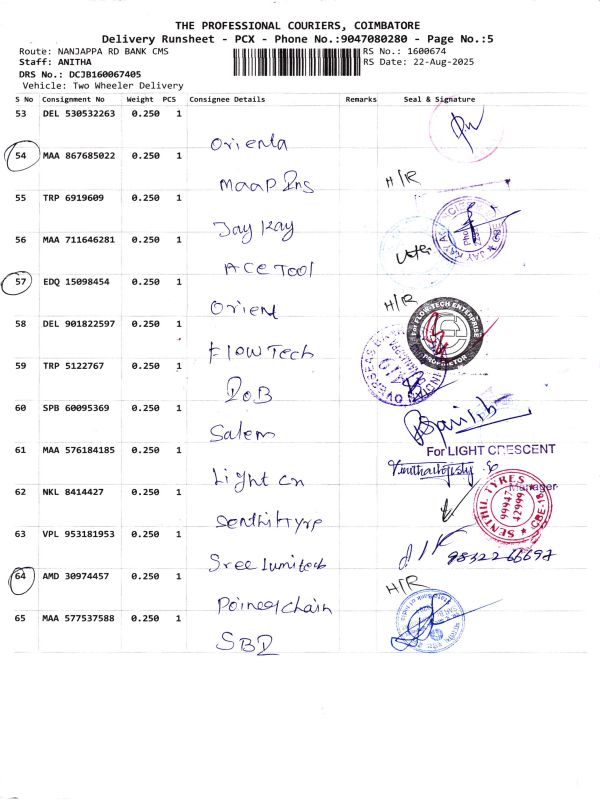 THE PROFESSIONAL COURIERS, COIMBATORE
Delivery Runsheet - PCX - Phone No.:9047080280 - Page No.:5
Route: NANJAPPA RD BANK CMS RS No.: 1600674
Staff: ANITHA RS Date: 22-Aug-2025
DRS No.: DCJB160067405
Vehicle: Two Wheeler Delivery
S No Consignment No Weight PCS Consignee Details Remarks Seal & Signature
53 DEL 530532263 0.250 1
Orienta
54 MAA 867685022 0.250 1
maap Ins H/R
55 TRP 6919609 0.250 1
Jay Kay
56 MAA 711646281 0.250 1
ACE TOOl
57 EDQ 15098454 0.250 1
Orient H/R
58 DEL 901822597 0.250 1
FLOW Tech
FLOR-TECH ENTERPRISE
PROPRIETOR
59 TRP 5122767 0.250 1
IOB
60 SPB 60095369 0.250 1
Salem
61 MAA 576184185 0.250 1
For LIGHT CRESCENT
Light Cn
Manager
62 NKL 8414427 0.250 1
Senthil tyre
SENTHIL TYRES
99947
42999
CBE-18
63 VPL 953181953 0.250 1
Sree lumi tech 98322 66697
64 AMD 30974457 0.250 1
H/R
Poineer chain
65 MAA 577537588 0.250 1
SBI